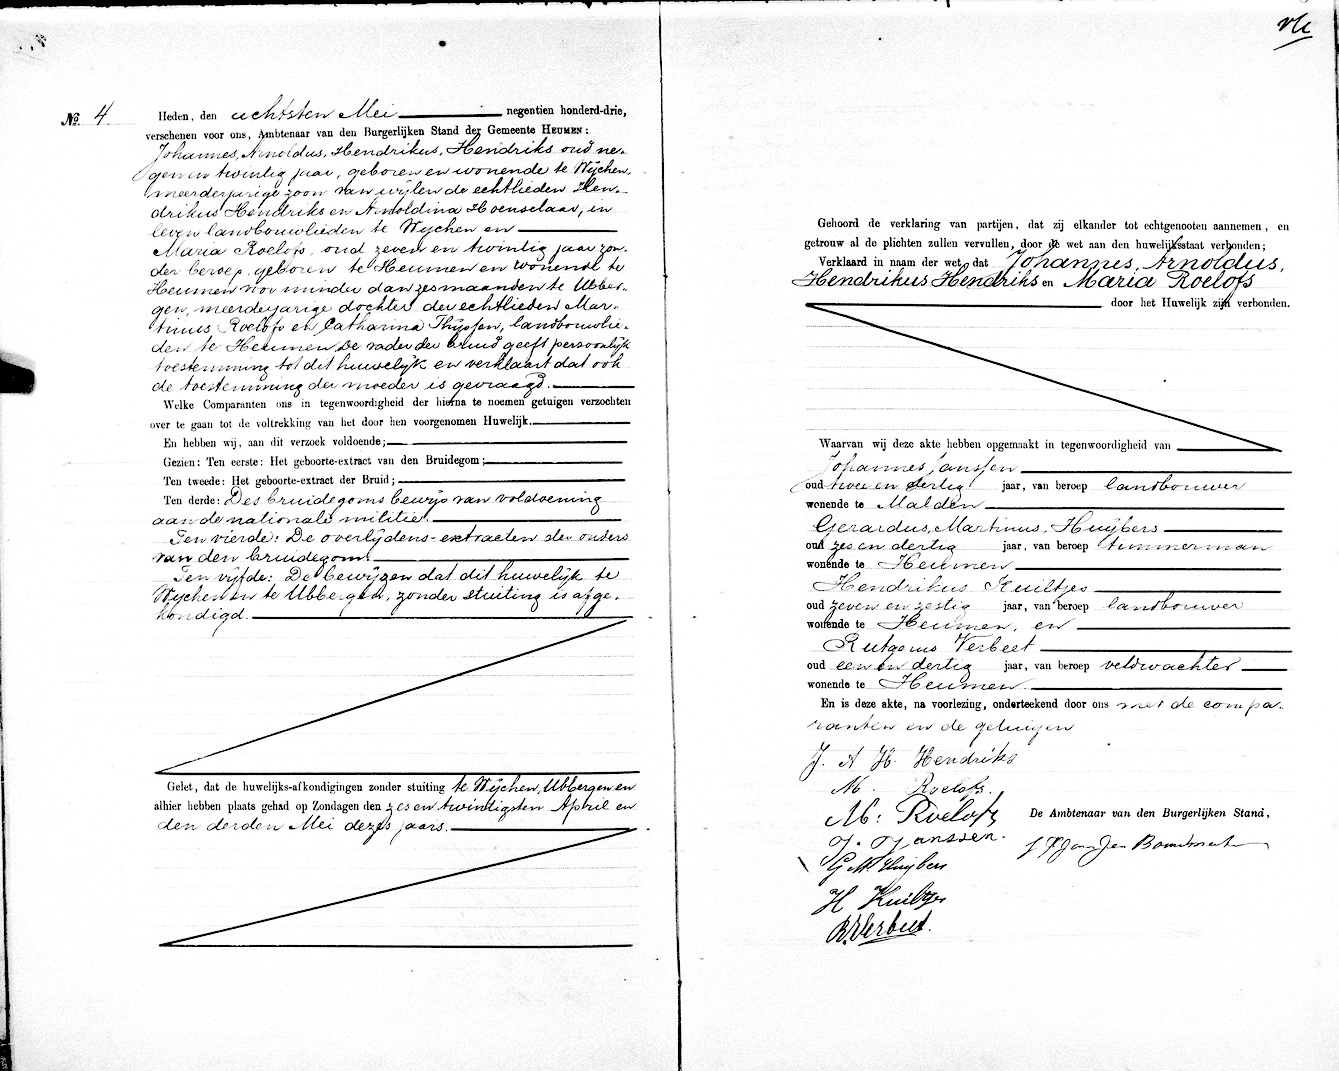 No. 4.
Heden, den achtsten Mei negentien honderd-drie,
verschenen voor ons, Ambtenaar van den Burgerlijken Stand der Gemeente HEUMEN:
Johannes, Arnoldus, Hendrikus, Hendriks oud ne-
gen en twintig jaar, geboren en wonende te Wychen,
meerderjarige zoon van wijlen de echtlieden Hen-
drikus Hendriks en Arnoldina Hoenselaar, in
leven landbouwlieden te Wychen en
Maria Roelofs, oud zeven en twintig jaar zon-
der beroep, geboren te Heumen en wonende te
Heumen voor minder dan zes maanden te Ubber-
gen, meerderjarige dochter der echtlieden Mar-
tinus Roelofs en Catharina Thijssen, landbouwlie-
den te Heumen. De vader der bruid geeft persoonlijk
toestemming tot dit huwelijk en verklaart dat ook
de toestemming der moeder is gevraagd.
Welke Comparanten ons in tegenwoordigheid der hierna te noemen getuigen verzochten
over te gaan tot de voltrekking van het door hen voorgenomen Huwelijk.
En hebben wij, aan dit verzoek voldoende;
Gezien: Ten eerste: Het geboorte-extract van den Bruidegom;
Ten tweede: Het geboorte-extract der Bruid;
Ten derde: Des bruidegoms bewijs van voldoening
aan de nationale militie.
Ten vierde: De overlijdens-extracten der ouders
van den bruidegom.
Ten vijfde: De bewijzen dat dit huwelijk te
Wychen en te Ubbergen, zonder stuiting is afge-
kondigd.
Gelet, dat de huwelijks-afkondigingen zonder stuiting te Wychen, Ubbergen en
alhier hebben plaats gehad op Zondagen den zes en twintigsten April en
den derden Mei dezes jaars.
Gehoord de verklaring van partijen, dat zij elkander tot echtgenooten aannemen, en
getrouw al de plichten zullen vervullen, door de wet aan den huwelijksstaat verbonden;
Verklaard in naam der wet, dat Johannes, Arnoldus,
Hendrikus Hendriks en Maria Roelofs
door het Huwelijk zijn verbonden.
Waarvan wij deze akte hebben opgemaakt in tegenwoordigheid van
Johannes Janssen
oud twee en dertig jaar, van beroep landbouwer
wonende te Malden
Gerardus, Martinus, Huijbers
oud zes en dertig jaar, van beroep timmerman
wonende te Heumen
Hendrikus Kuiltjes
oud zeven en zestig jaar, van beroep landbouwer
wonende te Heumen, en
Rutgerus Verbeet
oud een en dertig jaar, van beroep veldwachter
wonende te Heumen.
En is deze akte, na voorlezing, onderteekend door ons met de compa-
ranten en de getuigen
J. A. H. Hendriks
M. Roelofs.
M: Roelofs
De Ambtenaar van den Burgerlijken Stand,
J. Janssen.
G M Huijbers
H Kuiltjes
R. Verbeet.